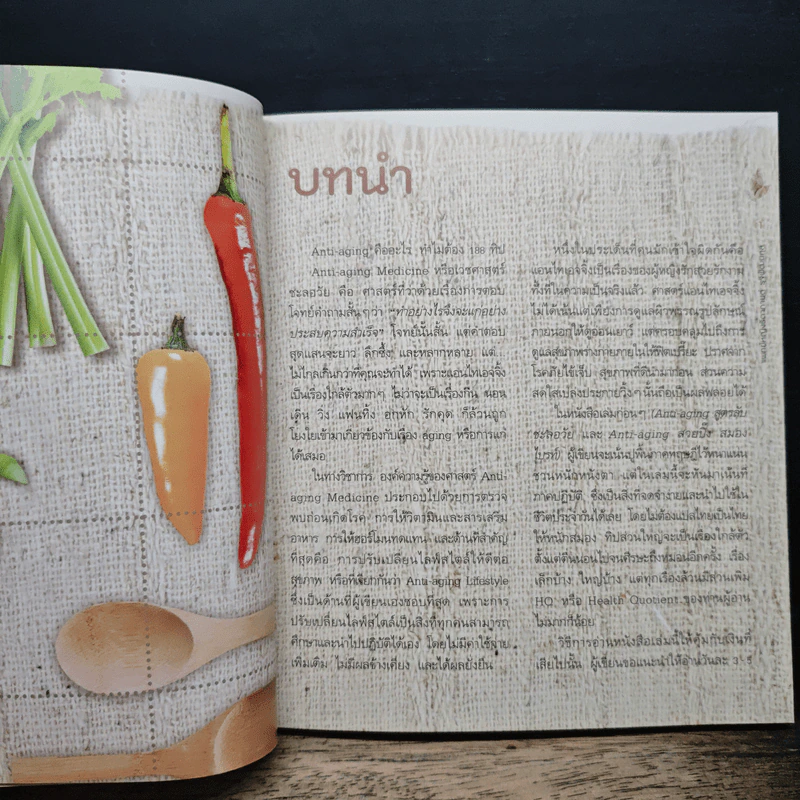 บทนำ
Anti-aging คืออะไร ทำไมต้อง 188 ทิป
Anti-aging Medicine หรือเวชศาสตร์
ชะลอวัย คือ ศาสตร์ที่ว่าด้วยเรื่องการตอบ
โจทย์คำถามสั้นๆ ว่า "ทำอย่างไรจึงจะแก่อย่าง
ประสบความสำเร็จ" โจทย์นั้นสั้น แต่คำตอบ
สุดแสนจะยาว ลึกซึ้ง และหลากหลาย แต่
ไม่ไกลเกินกว่าที่คุณจะทำได้ เพราะแอนไทเอจจิ้ง
เป็นเรื่องใกล้ตัวมากๆ ไม่ว่าจะเป็นเรื่องกิน นอน
เดิน วิ่ง แฟนทิ้ง อกหัก รักคุด ก็ล้วนถูก
โยงใยเข้ามาเกี่ยวข้องกับเรื่อง aging หรือการแก่
ได้เสมอ
ในทางวิชาการ องค์ความรู้ของศาสตร์ Anti-
aging Medicine ประกอบไปด้วยการตรวจ
พบก่อนเกิดโรค การให้วิตามินและสารเสริม
อาหาร การให้ฮอร์โมนทดแทน และด้านที่สำคัญ
ที่สุดคือ การปรับเปลี่ยนไลฟ์สไตล์ให้ดีต่อ
สุขภาพ หรือที่เรียกกันว่า Anti-aging Lifestyle
ซึ่งเป็นด้านที่ผู้เขียนเองชอบที่สุด เพราะการ
ปรับเปลี่ยนไลฟ์สไตล์เป็นสิ่งที่ทุกคนสามารถ
ศึกษาและนำไปปฏิบัติได้เอง โดยไม่มีค่าใช้จ่าย
เพิ่มเติม ไม่มีผลข้างเคียง และได้ผลยั่งยืน
หนึ่งในประเด็นที่คนมักเข้าใจผิดกันคือ
แอนไทเอจจิ้งเป็นเรื่องของผู้หญิงรักสวยรักงาม
ทั้งที่ในความเป็นจริงแล้ว ศาสตร์แอนไทเอจจิ้ง
ไม่ได้เน้นแต่เพียงการดูแลผิวพรรณรูปลักษณ์
ภายนอกให้ดูอ่อนเยาว์ แต่ครอบคลุมไปถึงการ
ดูแลสุขภาพร่างกายภายในให้ฟิตเปรี๊ยะ ปราศจาก
โรคภัยไข้เจ็บ สุขภาพที่ดีนำมาก่อน ส่วนความ
สดใสเปล่งประกายวิ้งๆ นั้นถือเป็นผลพลอยได้
ในหนังสือเล่มก่อนๆ (Anti-aging สูตรลับ
ชะลอวัย และ Anti-aging สวยปิ๊ง สมอง
ไบรท์) ผู้เขียนจะเน้นปูพื้นภาคทฤษฎีไว้หนาแน่น
ชวนหนักหนังตา แต่ในเล่มนี้จะหันมาเน้นที่
ภาคปฏิบัติ ซึ่งเป็นสิ่งที่จดจำง่ายและนำไปใช้ใน
ชีวิตประจำวันได้เลย โดยไม่ต้องแปลไทยเป็นไทย
ให้หนักสมอง ทิปส่วนใหญ่จะเป็นเรื่องใกล้ตัว
ตั้งแต่ตื่นนอนไปจนศีรษะถึงหมอนอีกครั้ง เรื่อง
เล็กบ้าง ใหญ่บ้าง แต่ทุกเรื่องล้วนมีส่วนเพิ่ม
HQ หรือ Health Quotient ของท่านผู้อ่าน
ไม่มากก็น้อย
วิธีการอ่านหนังสือเล่มนี้ให้คุ้มกับเงินที่
เสียไปนั้น ผู้เขียนขอแนะนำให้อ่านวันละ 3-5